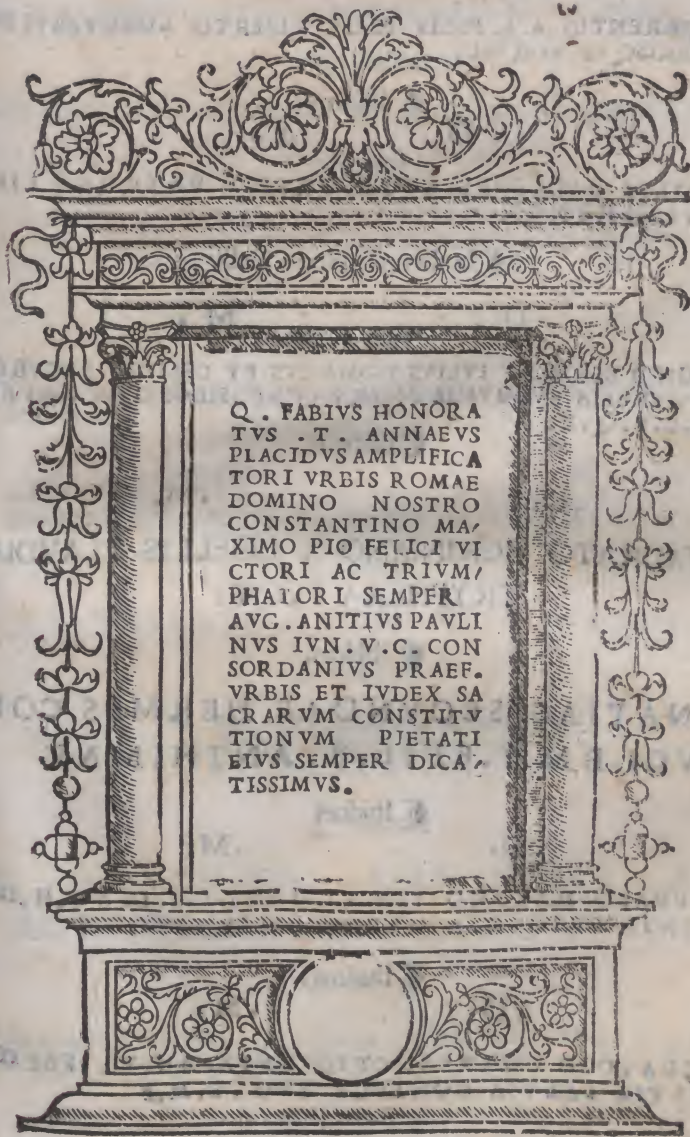 Q . FABIVS HONORA
TVS . T . ANNAEVS
PLACIDVS AMPLIFICA
TORI VRBIS ROMAE
DOMINO NOSTRO
CONSTANTINO MA/
XIMO PIO FELICI VI
CTORI AC TRIVM/
PHATORI SEMPER
AVG . ANITIVS PAVLI
NVS IVN . V . C . CON
SORDANIVS PRAEF.
VRBIS ET IVDEX SA
CRARVM CONSTITV
TIONVM PJETATI
EIVS SEMPER DICA/
TISSIMVS.